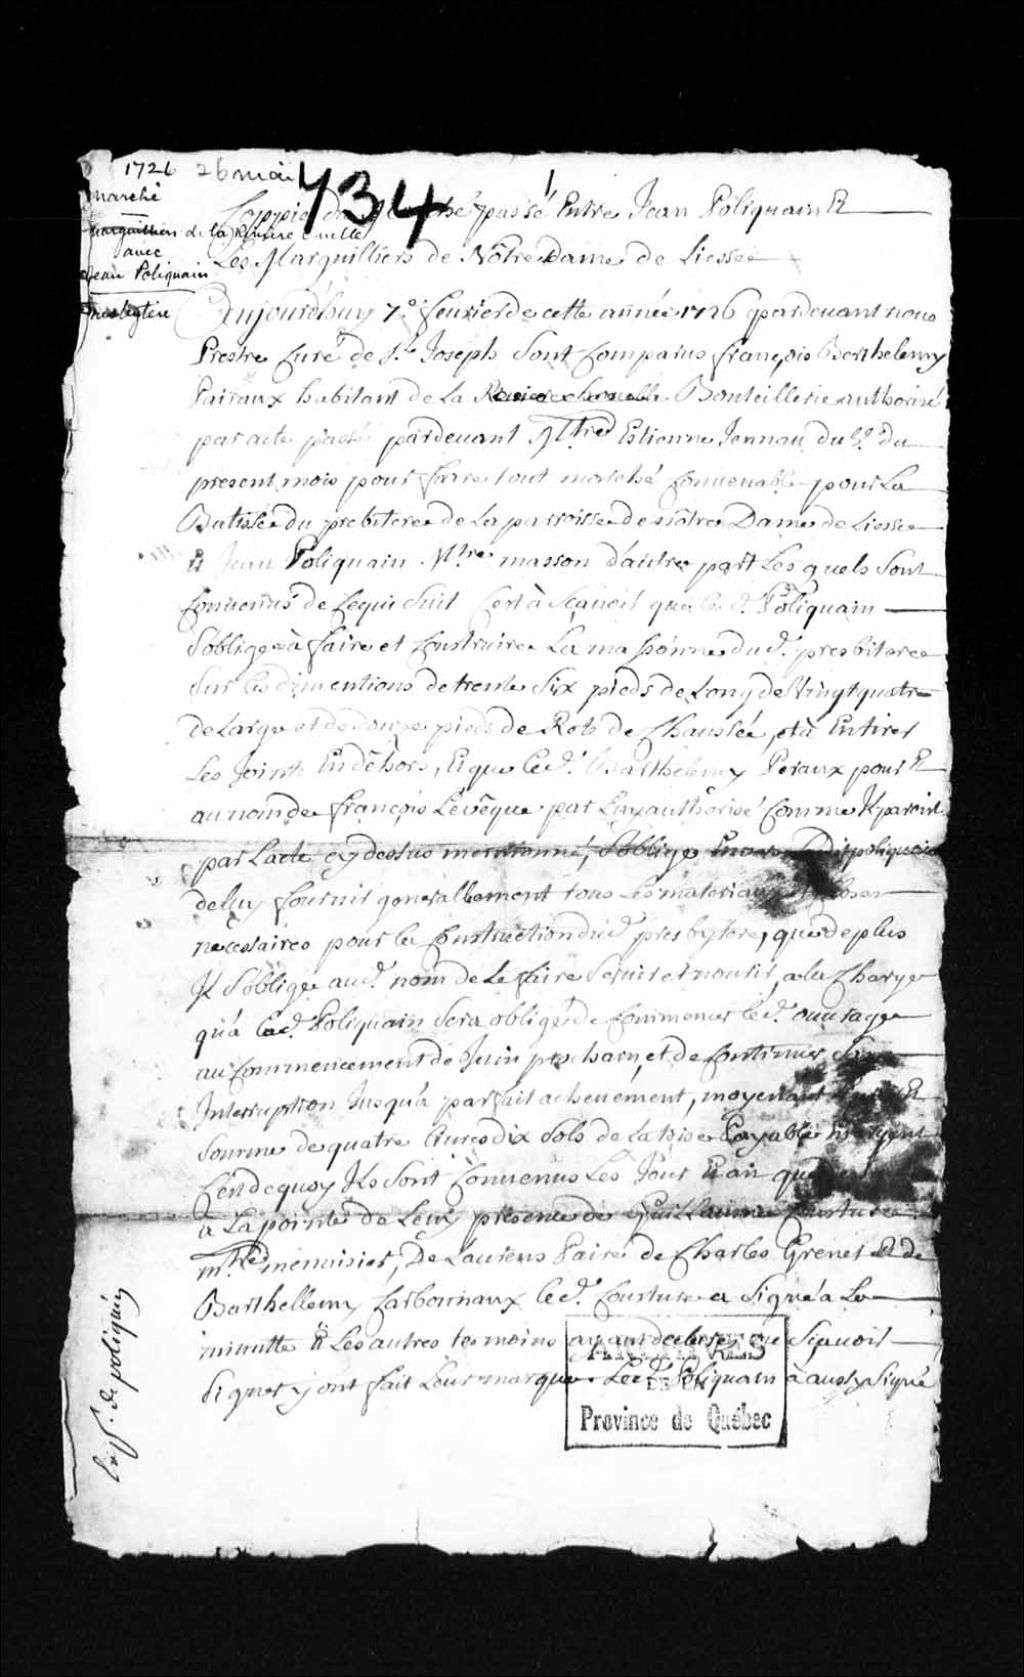 1726 26 mai 734
marché
marguilliers de la Riviere ouelle
avec
Jean Poliquain
Presbytere
1
Coppie du marché passé Entre Jean Poliquain Et
Les Marguilliers de Nôtre dame de Liesse
Aujourd'huy 7e feurier de cette année 1726 pardeuant nous
Prestre Curé de St Joseph Sont Comparus françois Barthelemy
Pairaux habitant de La Bouteillerie authorisé
par acte passé pardeuant Mtre Estienne Jennau du du
present mois pour faire tout marché Conuenable pour La
Batisse du presbitere de La parroisse de nôtre Dame de Liesse
Et Jean Poliquain Mtre masson d'autre part Les quels Sont
Conuenus de Cequi Suit Cest à Sçauoir que le d. Poliquain
S'oblige à faire et Construire La massonne du d. presbitere
Sur les dimentions de trente Six pieds de Long de Vingt quatre
de Large et de douze pieds de Rets de Chaussée, et à En tirer
Les Joints En déhors, Et que Led. Barthelemy Peraux pour Et
au nom de françois Lévêque par Luy authorisé Comme Il paroist
par Lacte cy dessus mentionné, S'oblige Enuers Led. poliquain
de luy fournir generallement tous Les materiaux
necessaires pour la Construction dud. presbytere, que de plus
Il S'oblige aud. nom de Le faire Seruir et nourir, a la Charge
qu'à Led. Poliquain Sera obligé de Commencer Led. ouurage
au Commencement de Juin prochain, et de Continuer Sans
Interruption Jusqu'à parfait acheuément, moyenant Et
Somme de quatre Liures dix Sols de La toise Payable En argent
Cen de quoy Ils Sont Conuenus Les Jour Et an que
à La pointe de Leuy présence de Guillaume Couture
mtre menuisier, De Laurens Pairé de Charles Grenet Et de
Barthellemy Carbonnaux Led. Couture a Signé à La
minutte Et Les autres tesmoins ayant declaré ne Sçauoir
Signer y ont fait Leur marque. Led. Poliquain à aussy Signé
ARCHIVES
DE LA
Province de Québec
de poliquin